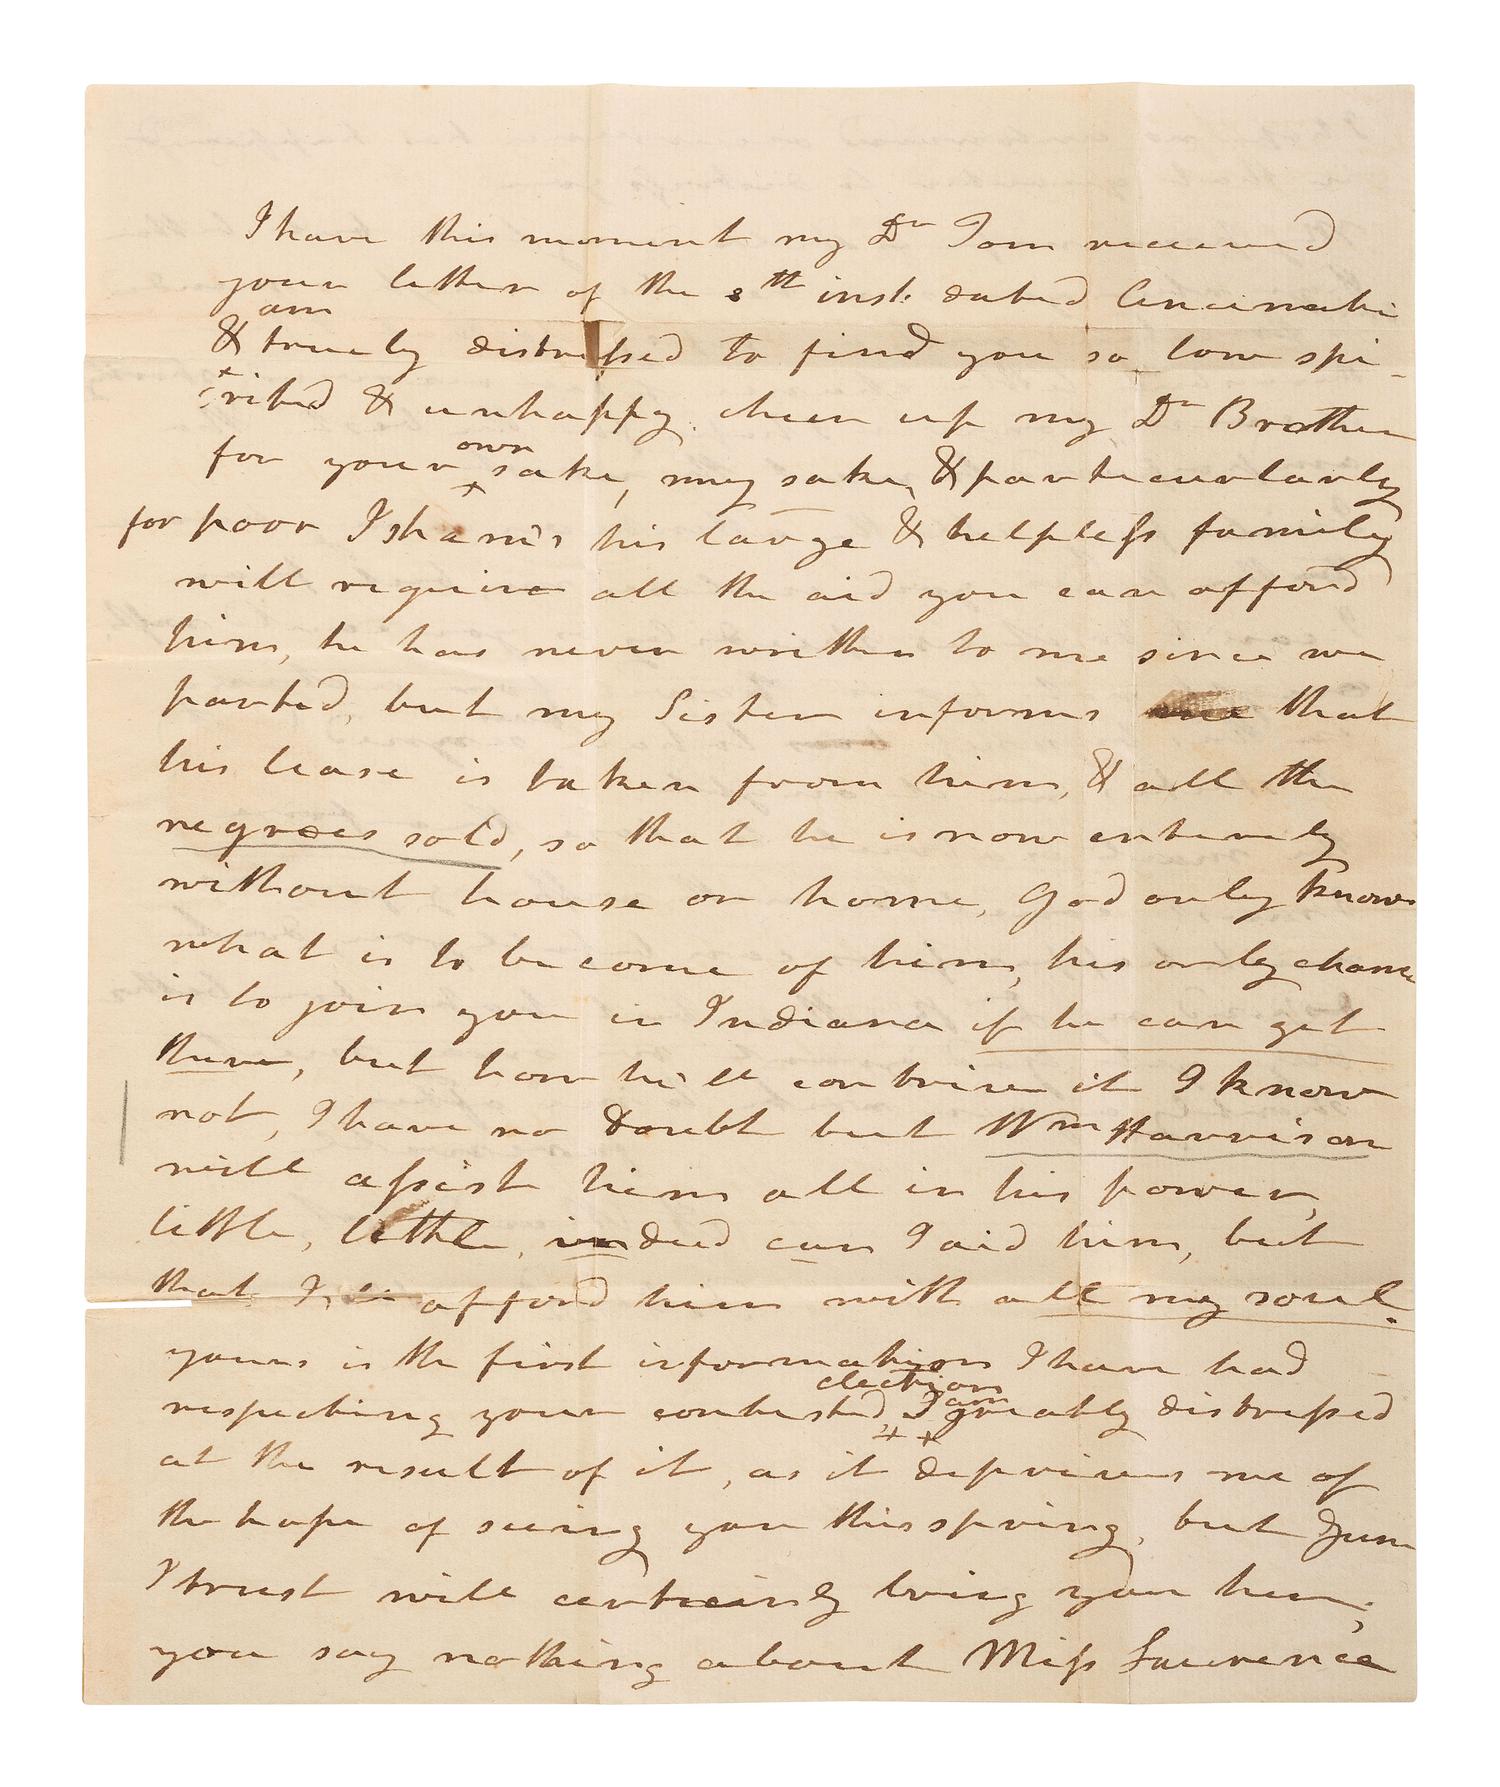 I have this moment my Dr Tom received
your letter of the 8th inst. dated Cincinnati
am
& truely distressed to find you so low spi-
rited & unhappy. cheer up my Dr Brother
own
for your sake, my sake, & particularly
for poor Isham's his large & helpless family
will require all the aid you can afford
him, he has never written to me since we
parted, but my Sister informs me that
his lease is taken from him, & all the
negroes sold, so that he is now entirely
without house or home, God only knows
what is to become of him, his only chance
is to join you in Indiana if he can get
there, but how he'll contrive it I know
not, I have no doubt but Wm Harrison
will assist him all in his power,
little, little, indeed can I aid him, but
that I'll afford him with all my soul.
yours is the first information I have had
election
I am
respecting your contested greatly distressed
at the result of it, as it deprives me of
the hope of seeing you this spring, but June
I trust will certainly bring you here,
you say nothing about Miss Lawrence